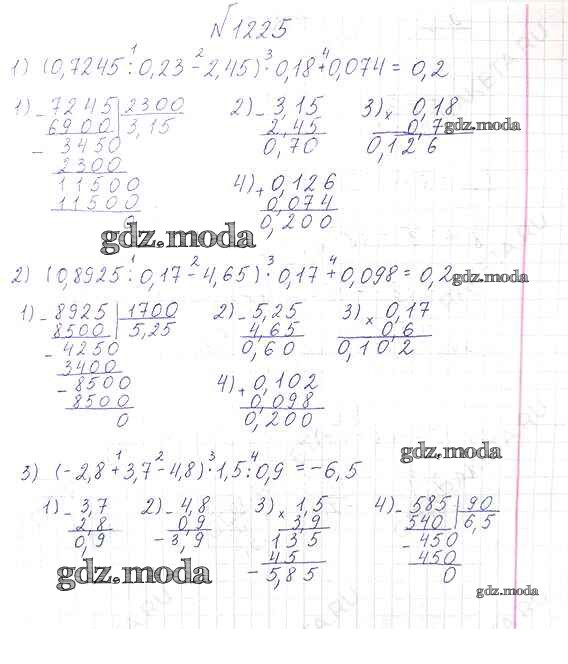 №1225
1) (0,7245 : 0,23 - 2,45) · 0,18 + 0,074 = 0,2
1 2 3 4
1) - 7245 | 2300
6900 | 3,15
- 3450
2300
11500
11500
0
2) - 3,15
2,45
0,70
3) x 0,18
0,7
0,126
gdz.moda
4) + 0,126
0,074
0,200
gdz.moda
2) (0,8925 : 0,17 - 4,65) · 0,17 + 0,098 = 0,2
1 2 3 4
gdz.moda
1) - 8925 | 1700
8500 | 5,25
- 4250
3400
- 8500
8500
0
2) - 5,25
4,65
0,60
3) x 0,17
0,6
0,102
4) + 0,102
0,098
0,200
gdz.moda
3) (-2,8 + 3,7 - 4,8) · 1,5 : 0,9 = -6,5
1 2 3 4
1) - 3,7
2,8
0,9
2) - 4,8
0,9
- 3,9
3) x 1,5
3,9
135
45
- 5,85
4) - 585 | 90
540 | 6,5
- 450
450
0
gdz.moda
gdz.moda